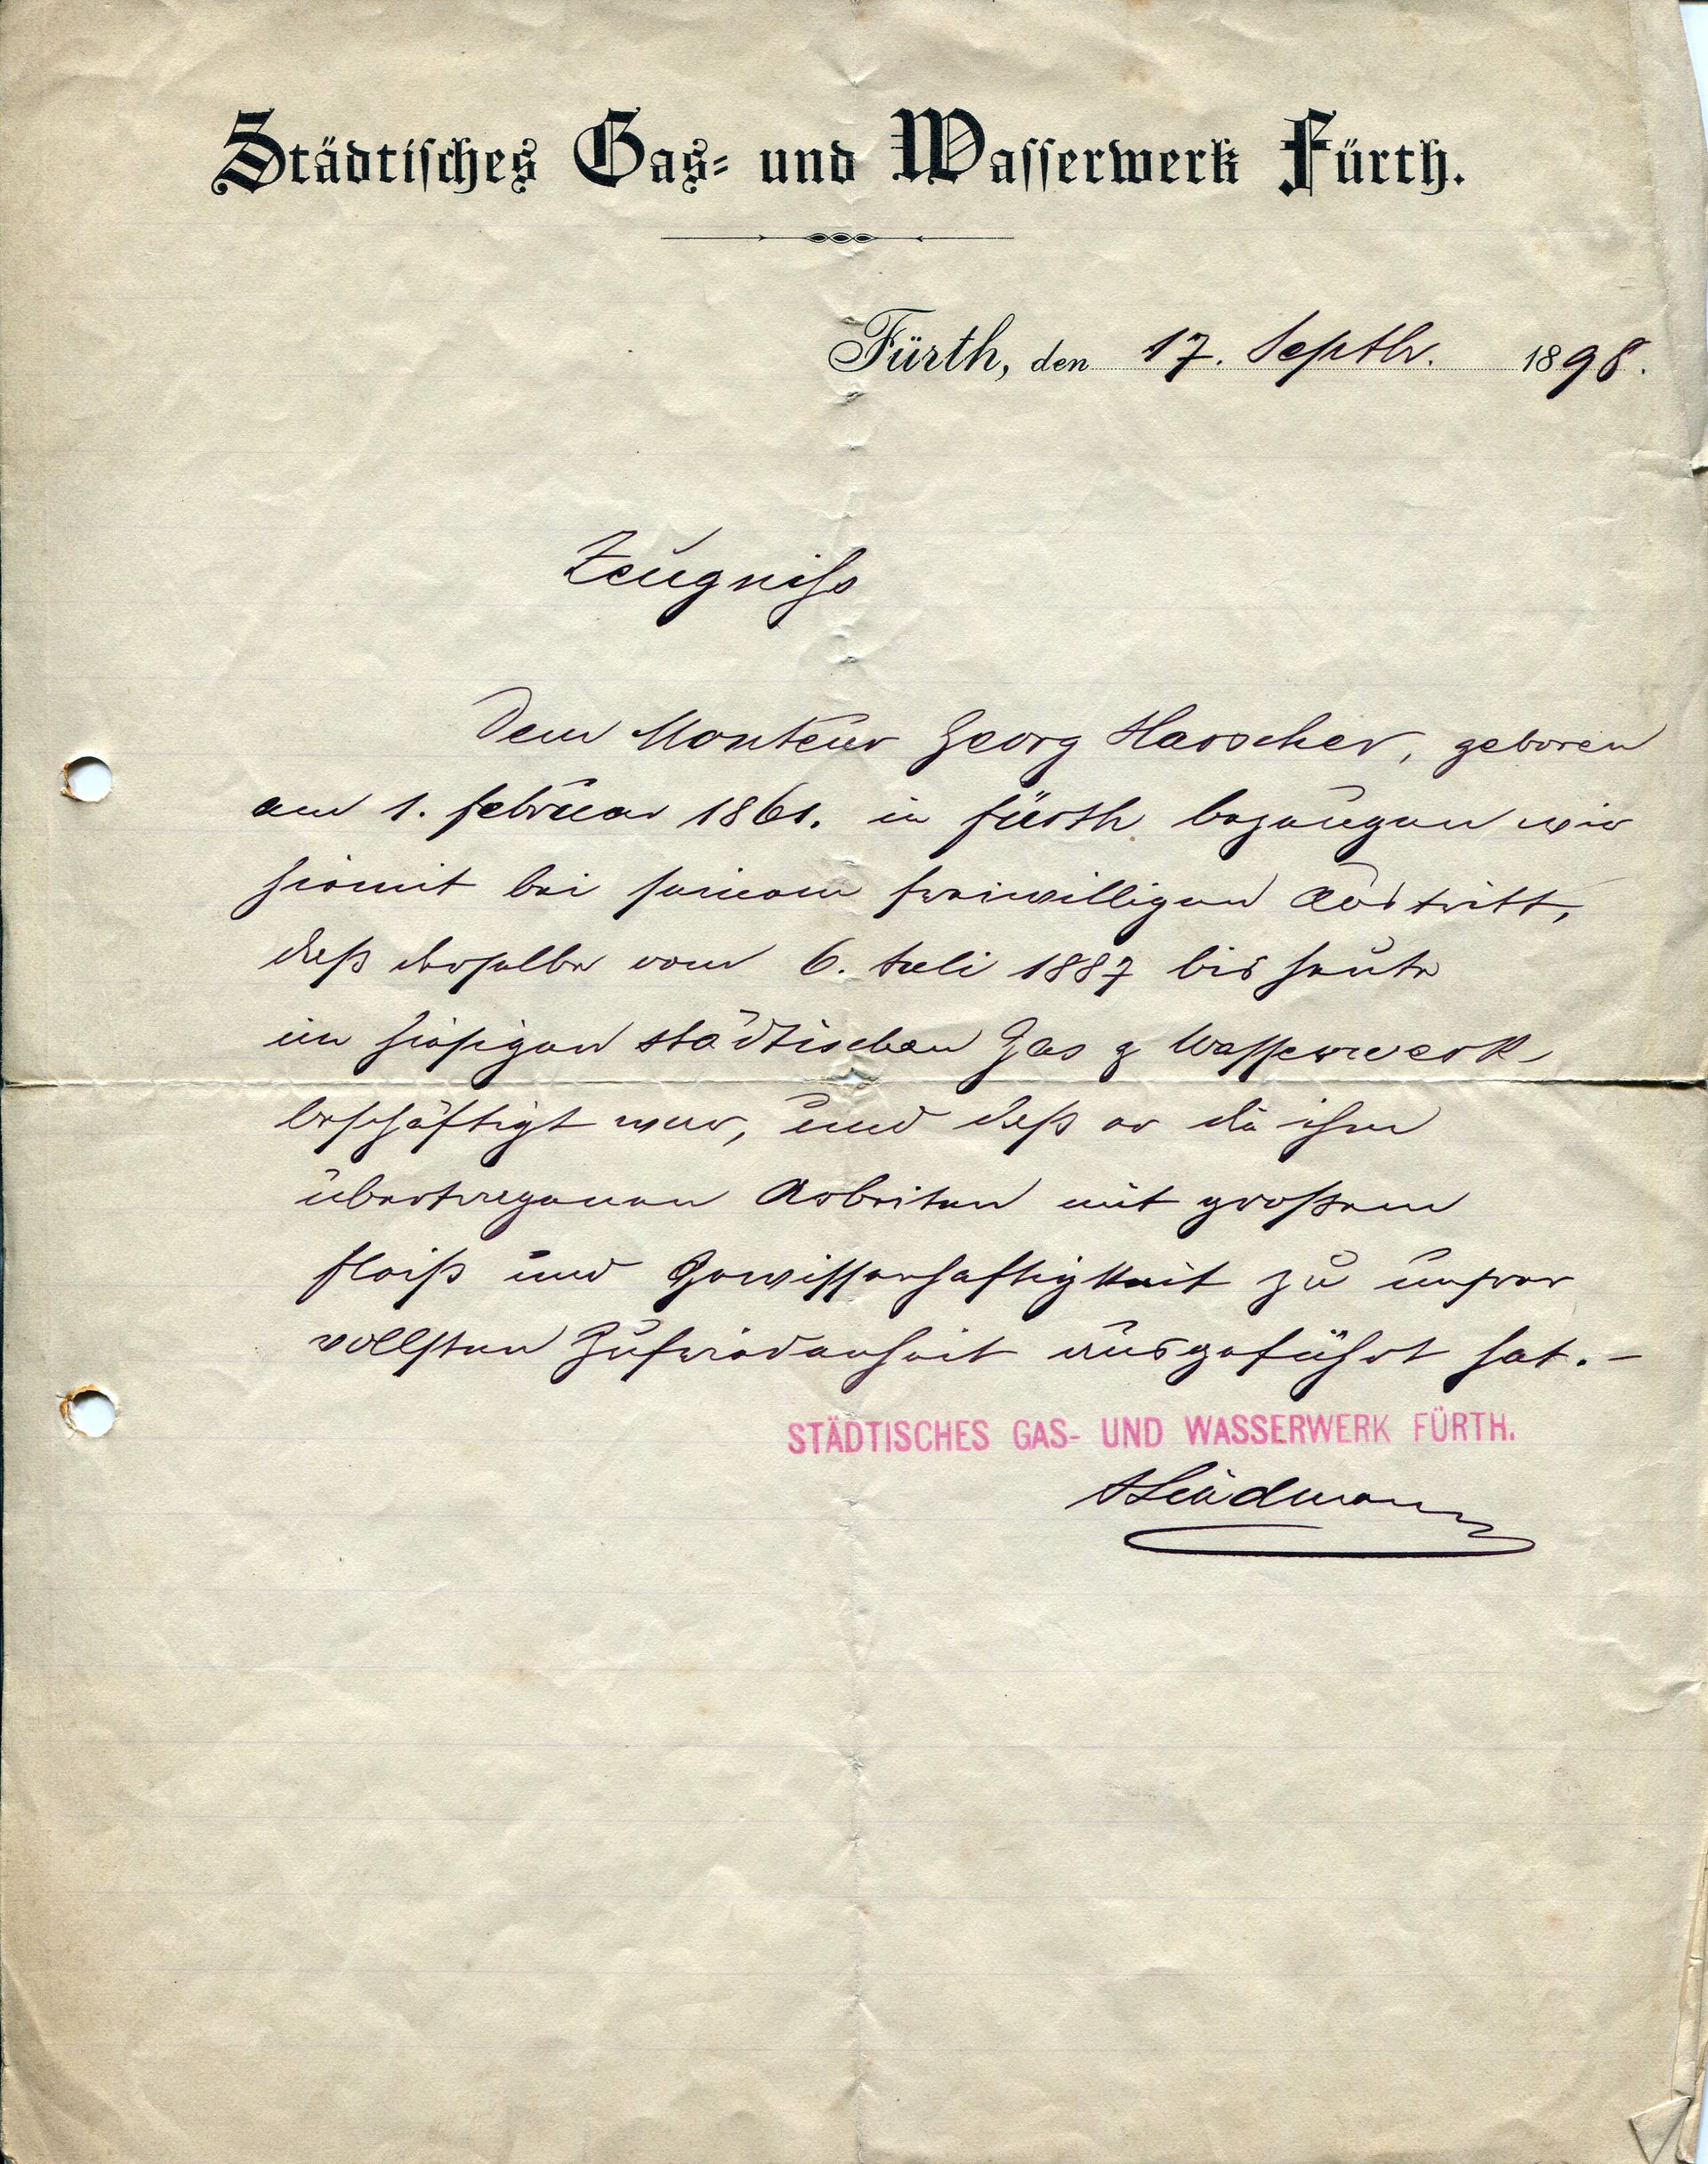 Städtisches Gas- und Wasserwerk Fürth.
Fürth, den 17. Septbr. 1898.
Zeugniss
Dem Monteur Georg Harscher, geboren
am 1. Februar 1861. in Fürth bezeugen wir
hiermit bei seinem freiwilligen Austritt,
daß derselbe vom 6. Juli 1887 bis heute
im hiesigen städtischen Gas & Wasserwerk
beschäftigt war, und daß er die ihm
übertragenen Arbeiten mit großem
Fleiß und Gewissenhaftigkeit zu unsrer
vollsten Zufriedenheit ausgeführt hat. –
STÄDTISCHES GAS- UND WASSERWERK FÜRTH.